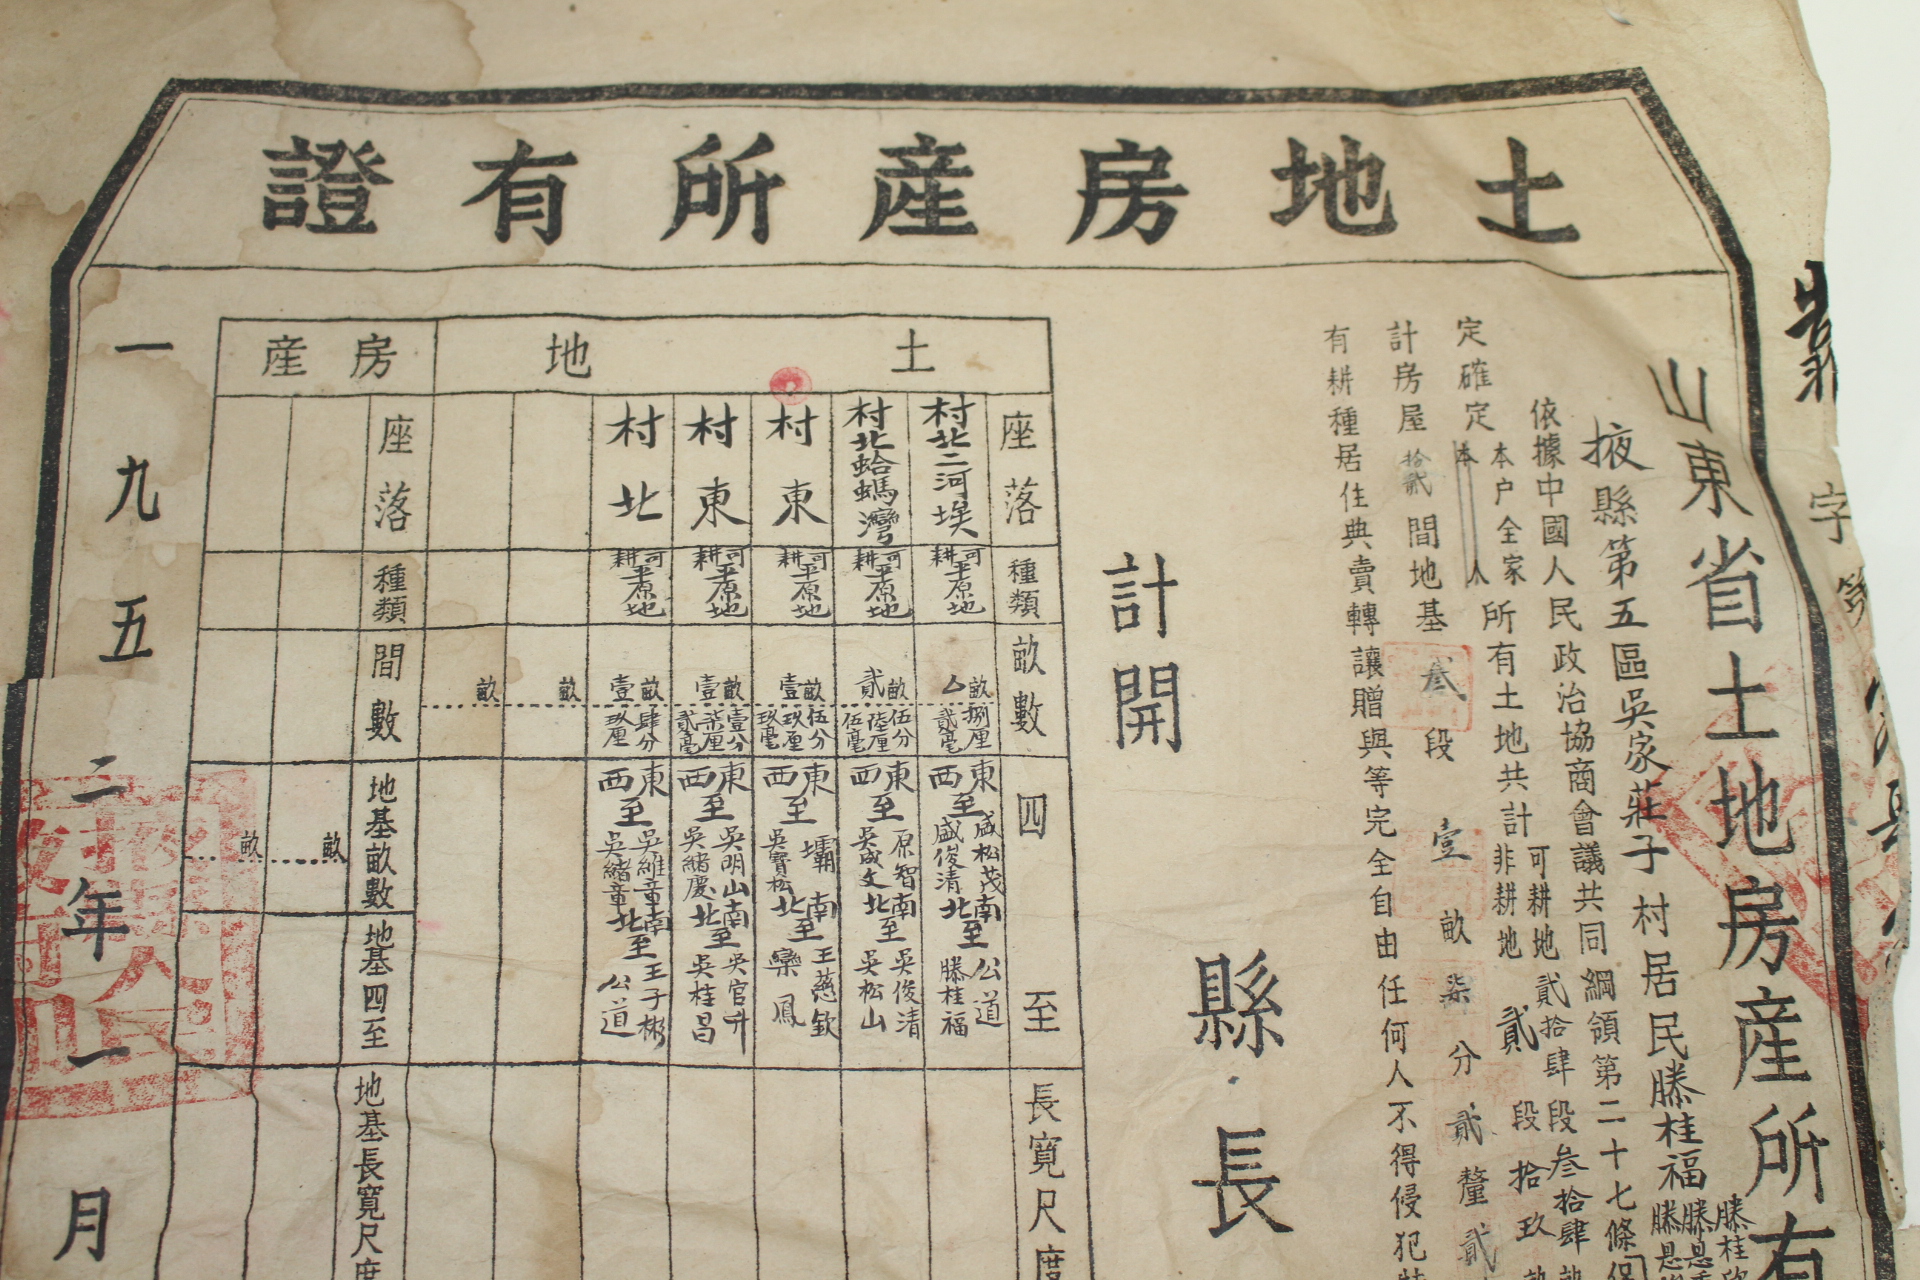 土地房產所有證
字第
山東省土地房產所有
掖縣第五區吳家莊子村居民滕桂福
滕桂欣
滕恩
滕恩
依據中國人民政治協商會議共同綱領第二十七條保
定確定
本户全家
本人
所有土地共計
可耕地貳拾肆段叁拾肆畝
非耕地貳段拾玖畝
計房屋拾貳間地基叁段壹畝柒分貳釐貳
有耕種居住典賣轉讓贈與等完全自由任何人不得侵犯特
縣長
計開
土地
座落
種類
畝數
四至
長寬尺度
村北二河埃
可耕平原地
畝捌厘貳毫
東西至盛松茂盛俊清南北至公道滕桂福
村北蛤蟆灣
可耕平原地
貳畝伍分陸厘伍毫
東西至原智吳成文南北至吳俊清吳松山
村東
可耕平原地
壹畝伍分玖厘玖毫
東西至壩吳寶松南北至王慈欽欒鳳
村東
可耕平原地
壹畝壹分柒厘貳毫
東西至吳明山吳緒慶南北至吳官升吳桂昌
村北
可耕平原地
壹畝肆分玖厘
東西至吳維章吳緒章南北至王子彬公道
畝
畝
房產
座落
種類
間數
地基畝數
地基四至
地基長寬尺度
畝
畝
一九五二年一月